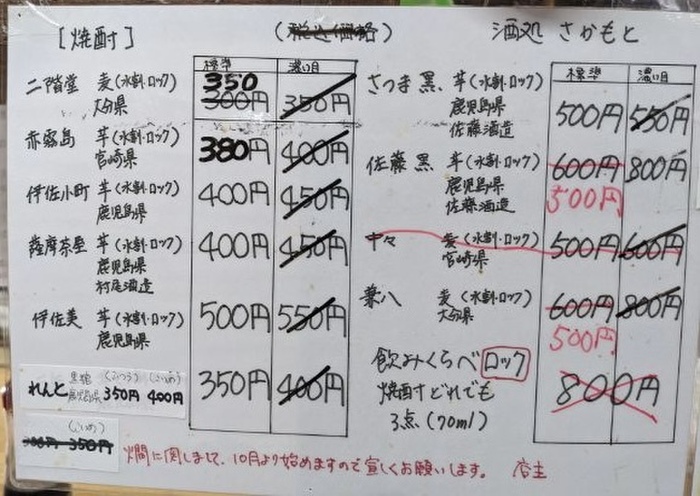 [焼酎]
(税込価格)
酒処 さかもと
標準 濃い目
二階堂 麦(水割・ロック) 350
大分県 300円 350円
赤霧島 芋(水割・ロック) 380円 400円
宮崎県
伊佐小町 芋(水割・ロック) 400円 450円
鹿児島県
薩摩茶屋 芋(水割・ロック) 400円 450円
鹿児島県
村尾酒造
伊佐美 芋(水割・ロック) 500円 550円
鹿児島県
350円 400円
れんと 黒糖 (ふつう) (こいめ)
鹿児島県 350円 400円
(こいめ)
350円
標準 濃い目
さつま黒 芋(水割・ロック) 500円 550円
鹿児島県
佐藤酒造
佐藤 黒 芋(水割・ロック) 600円 800円
鹿児島県 500円
佐藤酒造
中々 麦(水割・ロック) 500円 600円
宮崎県
兼八 麦(水割・ロック) 600円 800円
大分県 500円
飲みくらべ ロック
焼酎どれでも 800円
3点(70ml)
燗に関しまして、10月より始めますので宜しくお願いします。 店主